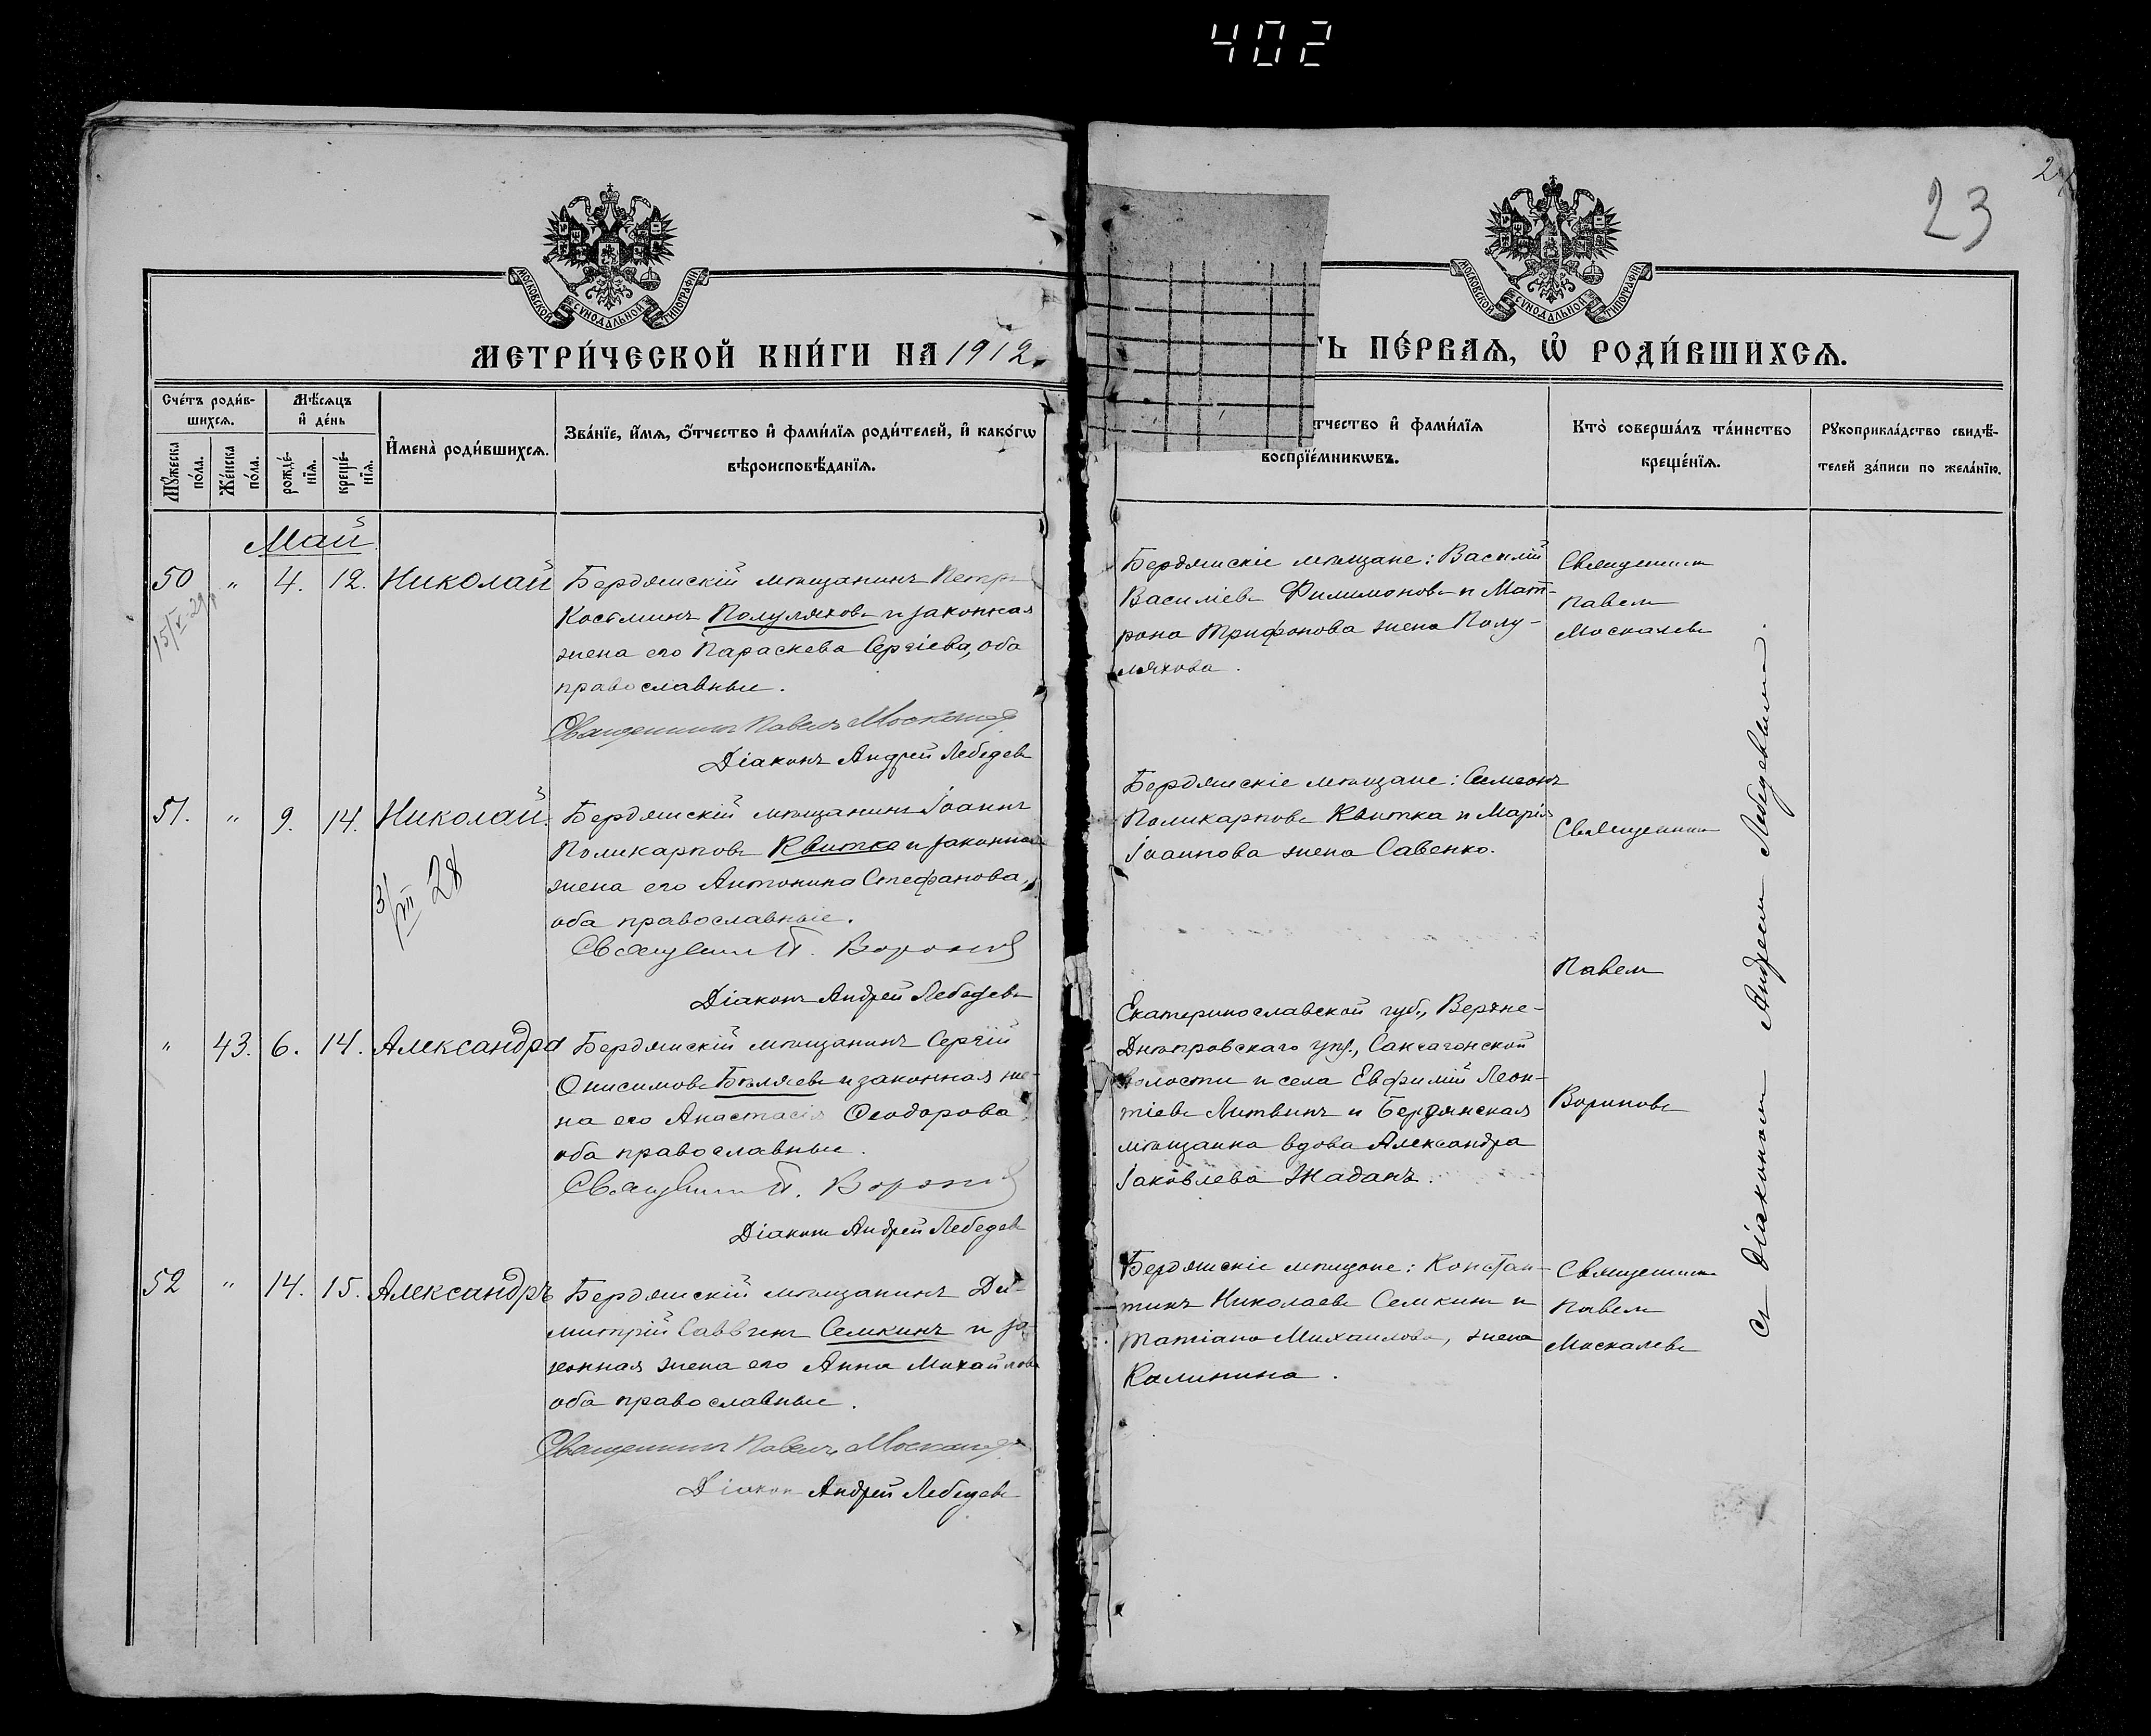 402
23
МОСКОВСКОЙ СѴНОДАЛЬНОЙ ТИПОГРАФІИ
МОСКОВСКОЙ СѴНОДАЛЬНОЙ ТИПОГРАФІИ
МЕТРИ́ЧЕСКОЙ КНИ́ГИ НА 1912.
ТЬ ПЕ́РВАѦ, Ѡ РОДИ́ВШИХСѦ.
Сче́тъ роди́в-
шихсѧ.
Мѣ́сѧцъ
и҆ де́нь
Мꙋ́жеска
по́ла.
Же́нска
по́ла.
рожде́-
нїѧ.
креще́-
нїѧ.
И҆мена̀ роди́вшихсѧ.
Зва́нїе, и҆́мѧ, о҆́тчество и҆ фами́лїѧ роди́телей, и҆ како́гѡ
вѣроисповѣ́данїѧ.
тчество и҆ фами́лїѧ
воспрїе́мникѡвъ.
Кто̀ соверша́лъ та́инство
креще́нїѧ.
Рꙋкоприкла́дство свидѣ́-
телей за́писи по жела́нїю.
Май.
50 " 4. 12. Николай
Бердянскій мѣщанинъ Петръ
Косьминъ Полуляховъ и законная
жена его Параскева Сергіева, оба
православные.
Священникъ Павелъ Москалевъ
Діаконъ Андрей Лебедевъ
Бердянскіе мѣщане: Василій
Васильевъ Филимоновъ и Мат-
рона Трифонова жена Полу-
ляхова.
Священникъ
Павелъ
Москалевъ
51. " 9. 14. Николай.
3/VII 28
Бердянскій мѣщанинъ Іоаннъ
Поликарповъ Квитка и законная
жена его Антонина Стефанова,
оба православные.
Священникъ П. Вороновъ
Діаконъ Андрей Лебедевъ
Бердянскіе мѣщане: Симеонъ
Поликарповъ Квитка и Марія
Іоаннова жена Савенко.
Священникъ
Павелъ
Вороновъ
" 43. 6. 14. Александра
Бердянскій мѣщанинъ Сергій
Онисимовъ Бѣляевъ и законная же-
на его Анастасія Ѳеодорова
оба православные.
Священникъ П. Вороновъ
Діаконъ Андрей Лебедевъ
Екатеринославской губ., Верхне-
Днѣпровскаго уѣз., Саксаганской
волости и села Евфимій Леон-
тіевъ Литвинъ и Бердянская
мѣщанка вдова Александра
Іаковлева Жаданъ.
52 " 14. 15. Александръ
Бердянскій мѣщанинъ Ди-
митрій Саввинъ Семкинъ и за-
конная жена его Анна Михайлова
оба православные.
Священникъ Павелъ Москалевъ
Діаконъ Андрей Лебедевъ
Бердянскіе мѣщане: Констан-
тинъ Николаевъ Семкинъ и
Татіана Михаилова, жена
Калинина.
Священникъ
Павелъ
Москалевъ
Съ Діакономъ Андреемъ Лебедевымъ.